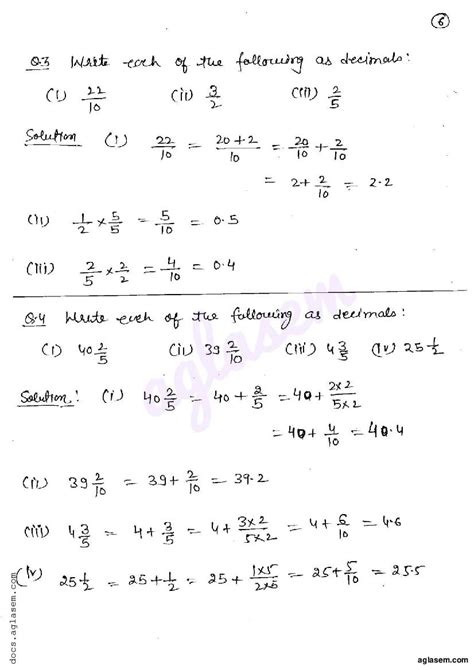 6
Q.3 Write each of the following as decimals:
(i) 22/10 (ii) 3/2 (iii) 2/5
Solution (i) 22/10 = 20+2/10 = 20/10 + 2/10
= 2 + 2/10 = 2.2
(ii) 1/2 × 5/5 = 5/10 = 0.5
(iii) 2/5 × 2/2 = 4/10 = 0.4
Q.4 Write each of the following as decimals:
(i) 40 2/5 (ii) 39 2/10 (iii) 4 3/5 (iv) 25 1/2
Solution: (i) 40 2/5 = 40 + 2/5 = 40 + 2×2/5×2
= 40 + 4/10 = 40.4
(ii) 39 2/10 = 39 + 2/10 = 39.2
(iii) 4 3/5 = 4 + 3/5 = 4 + 3×2/5×2 = 4 + 6/10 = 4.6
(iv) 25 1/2 = 25 + 1/2 = 25 + 1×5/2×5 = 25 + 5/10 = 25.5
aglasem
docs.aglasem.com
aglasem.com